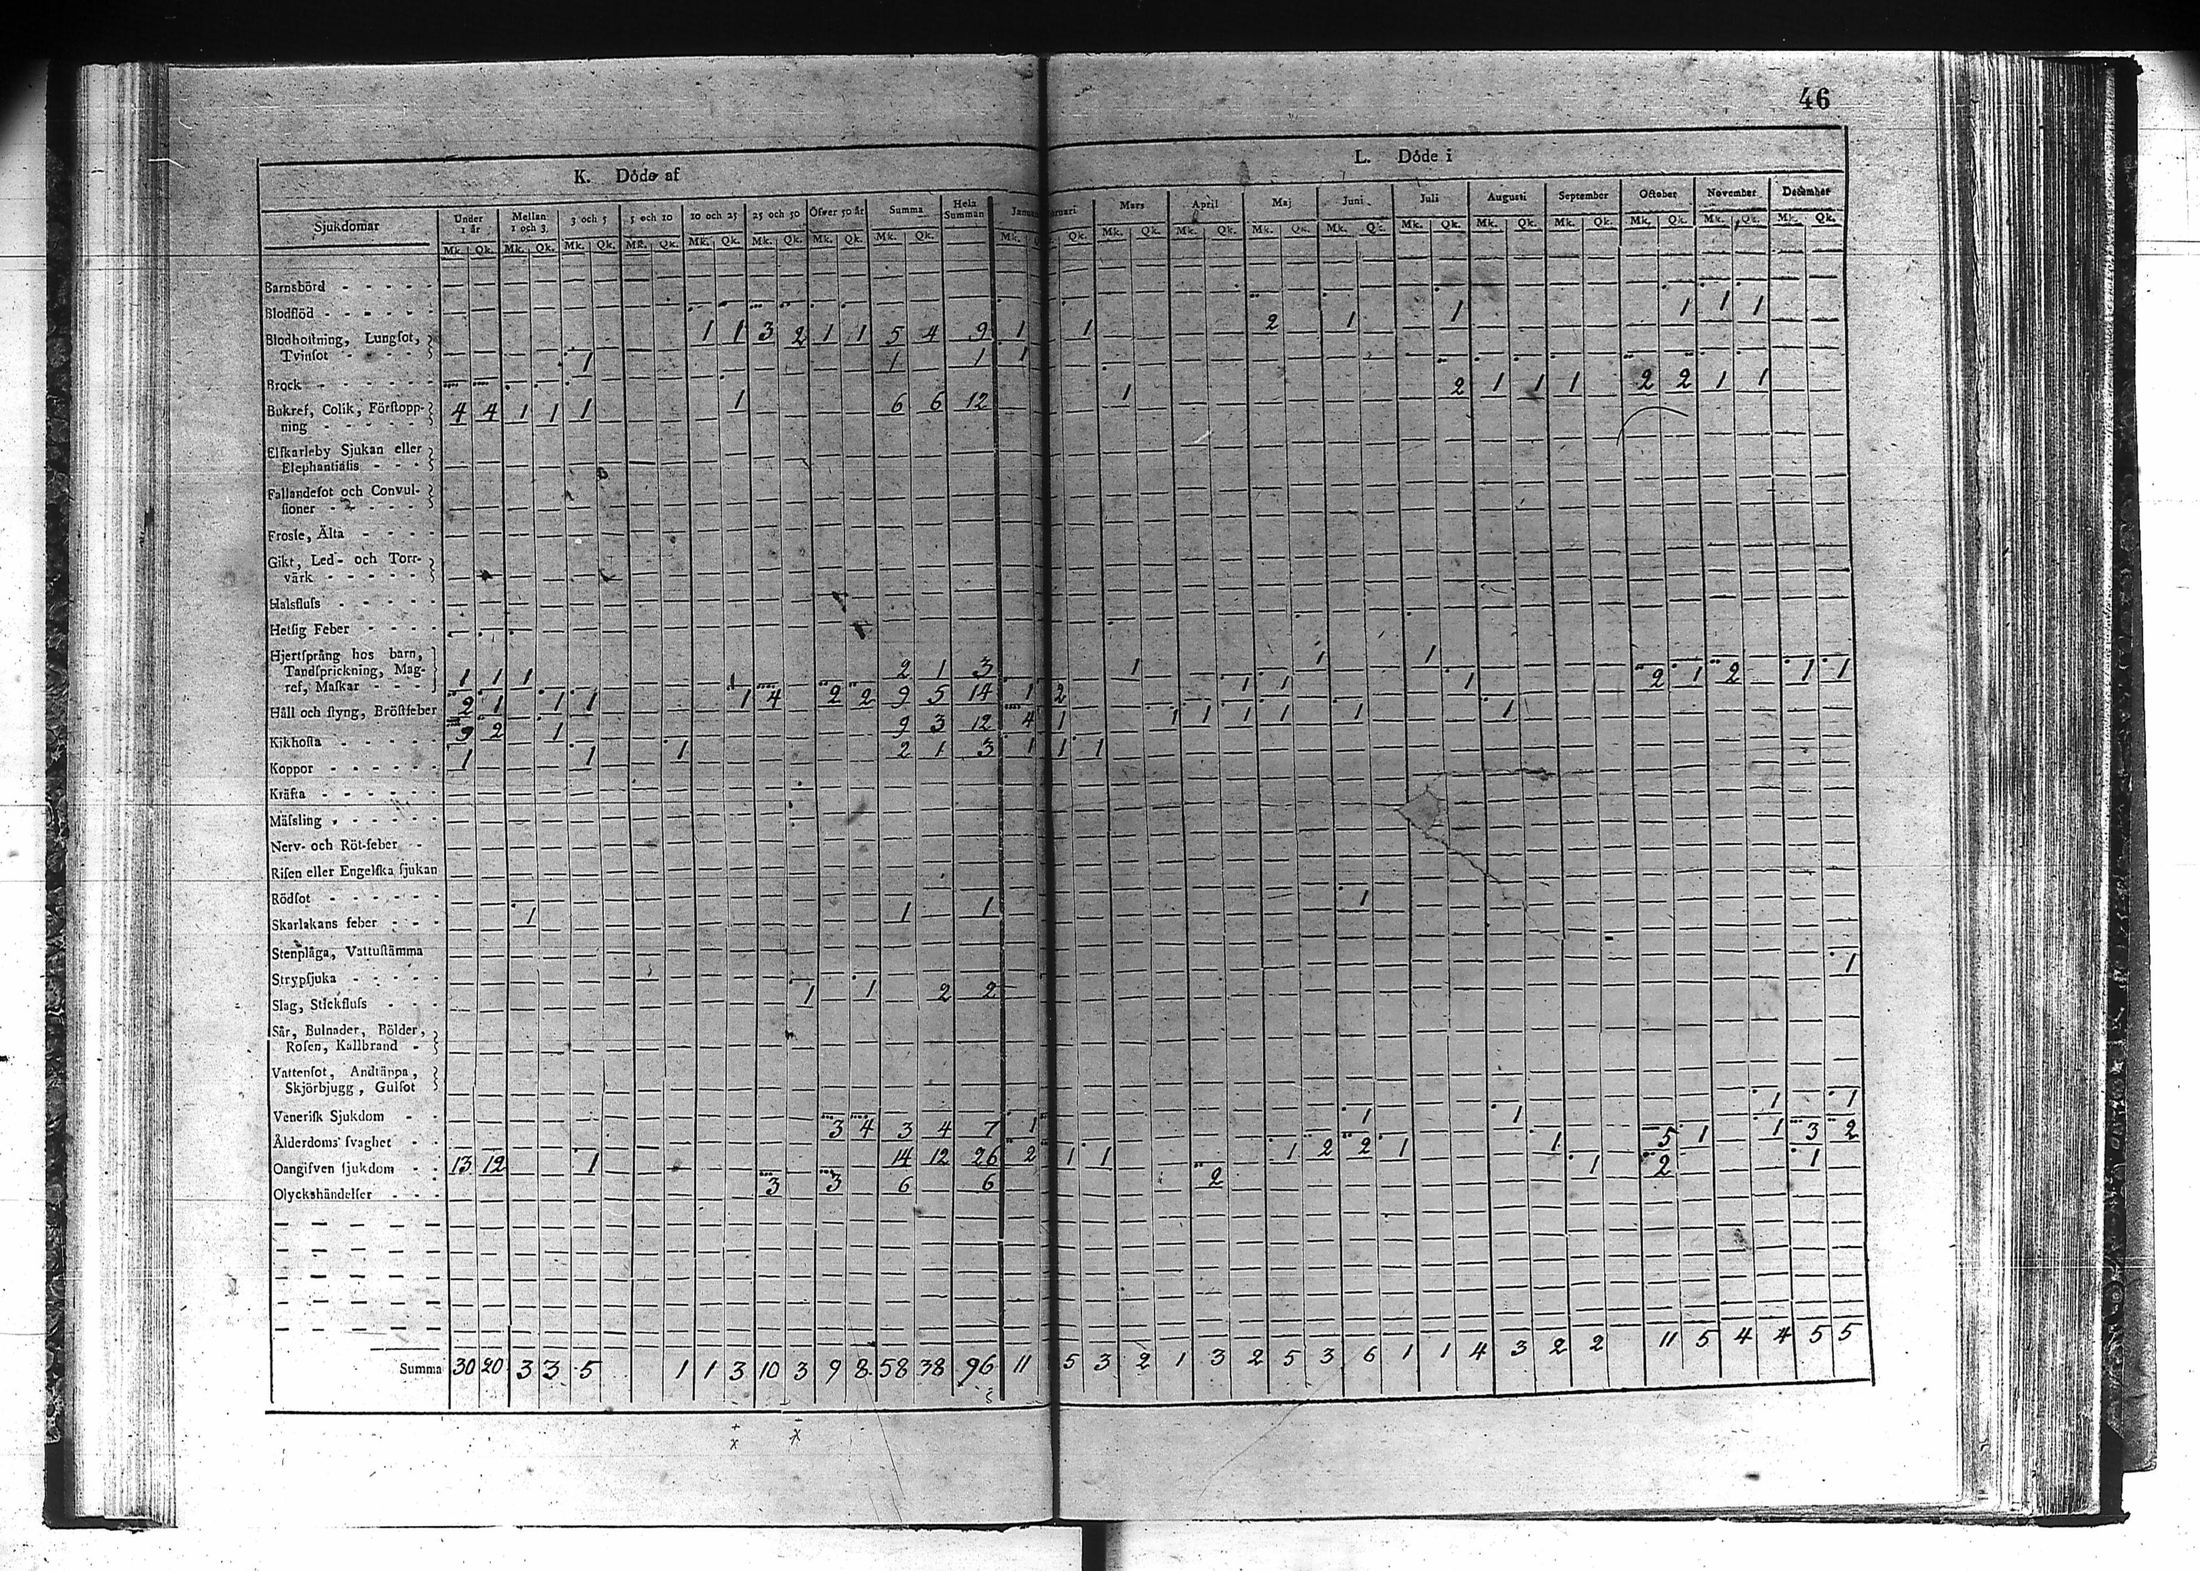 46
K. Döde af
L. Döde i
Sjukdomar Under 1 år Mellan 1 och 3. 3 och 5 5 och 10 10 och 25 25 och 50 Öfver 50 år Summa Hela Summan Mars April Maj Juni Juli Augusti September October November December
Mk. Qk. Mk. Qk. Mk. Qk. Mk. Qk. Mk. Qk. Mk. Qk. Mk. Qk. Mk. Qk. Mk. Qk. Mk. Qk. Mk. Qk. Mk. Qk. Mk. Qk. Mk. Qk. Mk. Qk. Mk. Qk. Mk. Qk. Mk. Qk. Mk. Qk.
Barnsbörd - - - - -
Blodflöd - - - - - -
Blodhostning, Lungſot,
Tvinſot - - - - 1 1 3 2 1 1 5 4 9 1 1 2 1 1 1 1 1
Brock - - - - - - 1 1 1 1
Bukref, Colik, Förſtopp-
ning - - - - - 4 4 1 1 1 1 6 6 12 1 2 1 1 1 2 2 1 1
Elfkarleby Sjukan eller
Elephantiaſis - - -
Fallandeſot och Convul-
ſioner - - - - -
Frosſe, Älta - - - -
Gikt, Led- och Torr-
värk - - - - -
Halsfluſs - - - - -
Hetſig Feber - - - -
Hjertſprång hos barn,
Tandſprickning, Mag-
ref, Maſkar - - - 1 1 1 2 1 3 1 1 1
Håll och ſtyng, Bröſtfeber 2 1 1 1 1 4 2 2 9 5 14 1 2 1 1 1 2 1 2 1 1
Kikhoſta - - - - - 9 2 1 9 3 12 4 1 1 1 1 1 1 1
Koppor - - - - - - 1 1 1 2 1 3 1 1 1
Kräfta - - - - - -
Mäſsling - - - - - -
Nerv- och Röt-feber - -
Riſen eller Engelſka ſjukan
Rödſot - - - - - -
Skarlakans feber - - - 1 1 1 1
Stenplåga, Vattuſtämma
Strypſjuka - - - - -
Slag, Stickfluſs - - - 1 1 2 2 1
Sår, Bulnader, Bölder,
Roſen, Kallbrand -
Vattenſot, Andtäppa,
Skjörbjugg, Gulſot
Veneriſk Sjukdom - -
Ålderdoms ſvaghet - - 3 4 3 4 7 1 1 1 1 1
Oangifven ſjukdom - - 13 12 1 14 12 26 2 1 1 1 2 2 1 1 5 1 1 3 2
Olyckshändelſer - - - 3 3 6 6 2 1 2 1
Summa 30 20 3 3 5 1 1 3 10 3 9 8 58 38 96 11 5 3 2 1 3 2 5 3 6 1 1 4 3 2 2 11 5 4 4 5 5